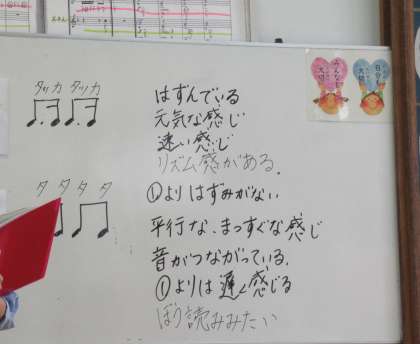 タッカ タッカ
はずんでいる
元気な感じ
速い感じ
リズム感がある。
タ タ タ タ
①よりはずみがない
平行な、まっすぐな感じ
音がつながっている。
①よりは遅く感じる
ぼう読みみたい
みんなも大切
自分も大切